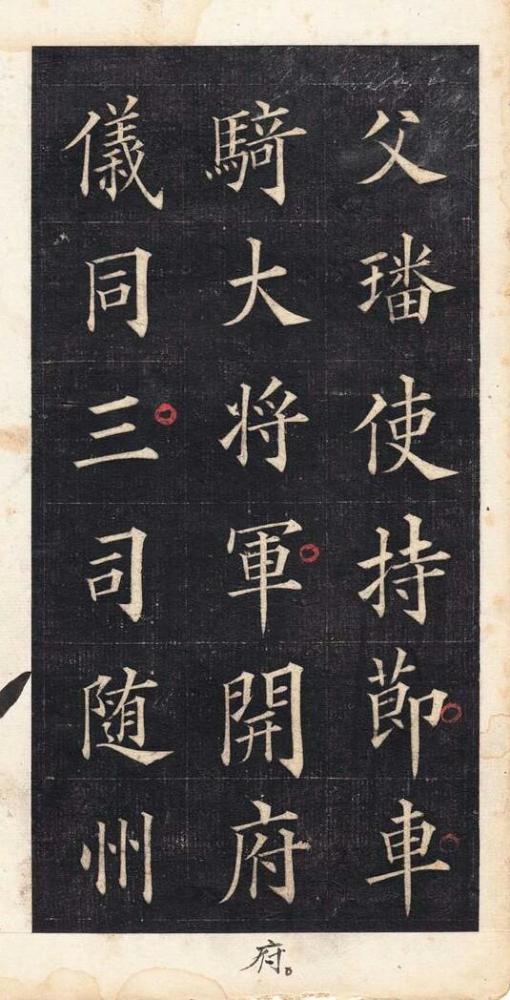 父璠使持節車
騎大将軍開府
儀同三司随州
府